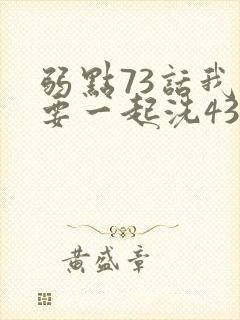 弱點73話我
要一起洗43
黃盛章